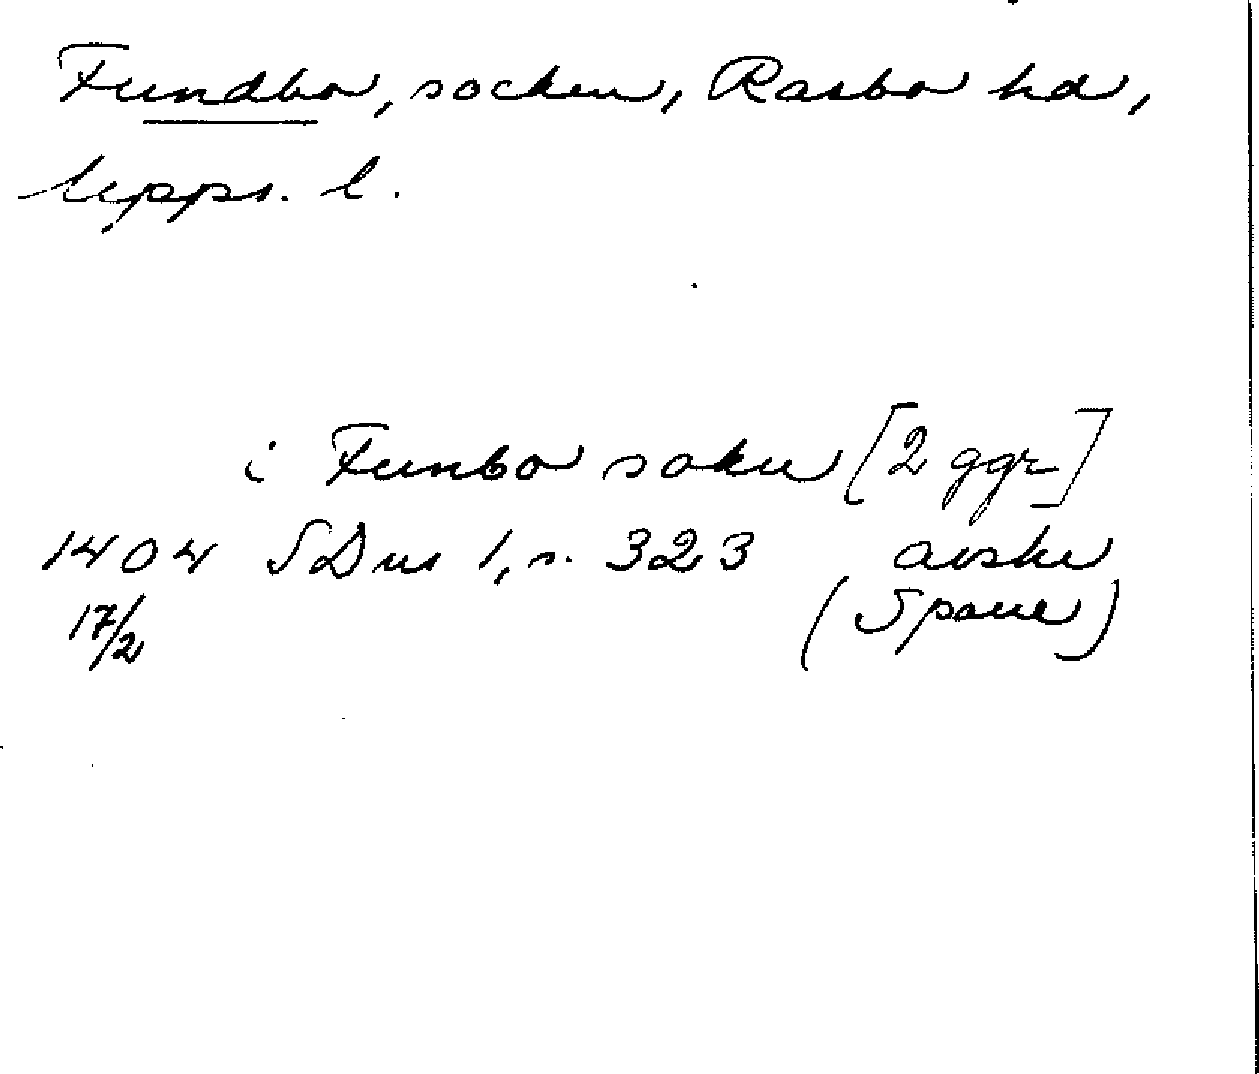 Fundbo, socken, Rasbo hd,
Upps. l.
i Funbo sokn [2 ggr]
1404 SDns 1, s. 323 avskr
17/2 (Spole)